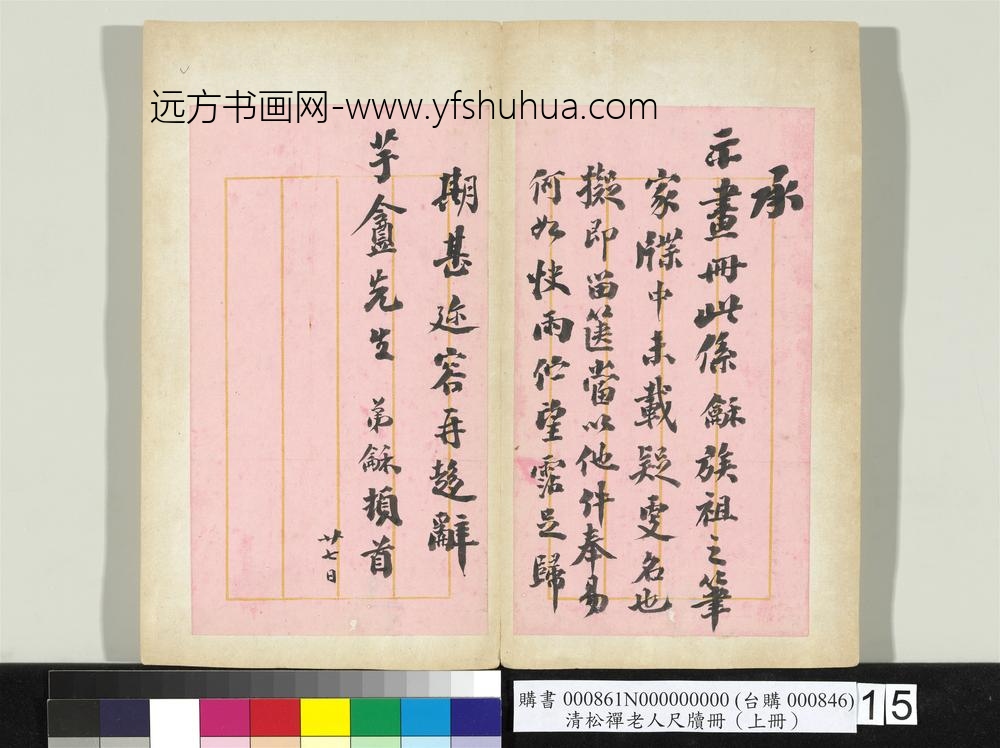 远方书画网-www.yfshuhua.com
承
示畫冊此係龢族祖之筆
家牒中未載疑更名也
擬即留篋當以他件奉易
何如快雨佇望霑足歸
期甚迩容再趨辭
芋盦先生 弟龢頓首
廿七日
購書 000861N000000000 (台購 000846)
清松禪老人尺牘冊（上冊）
15